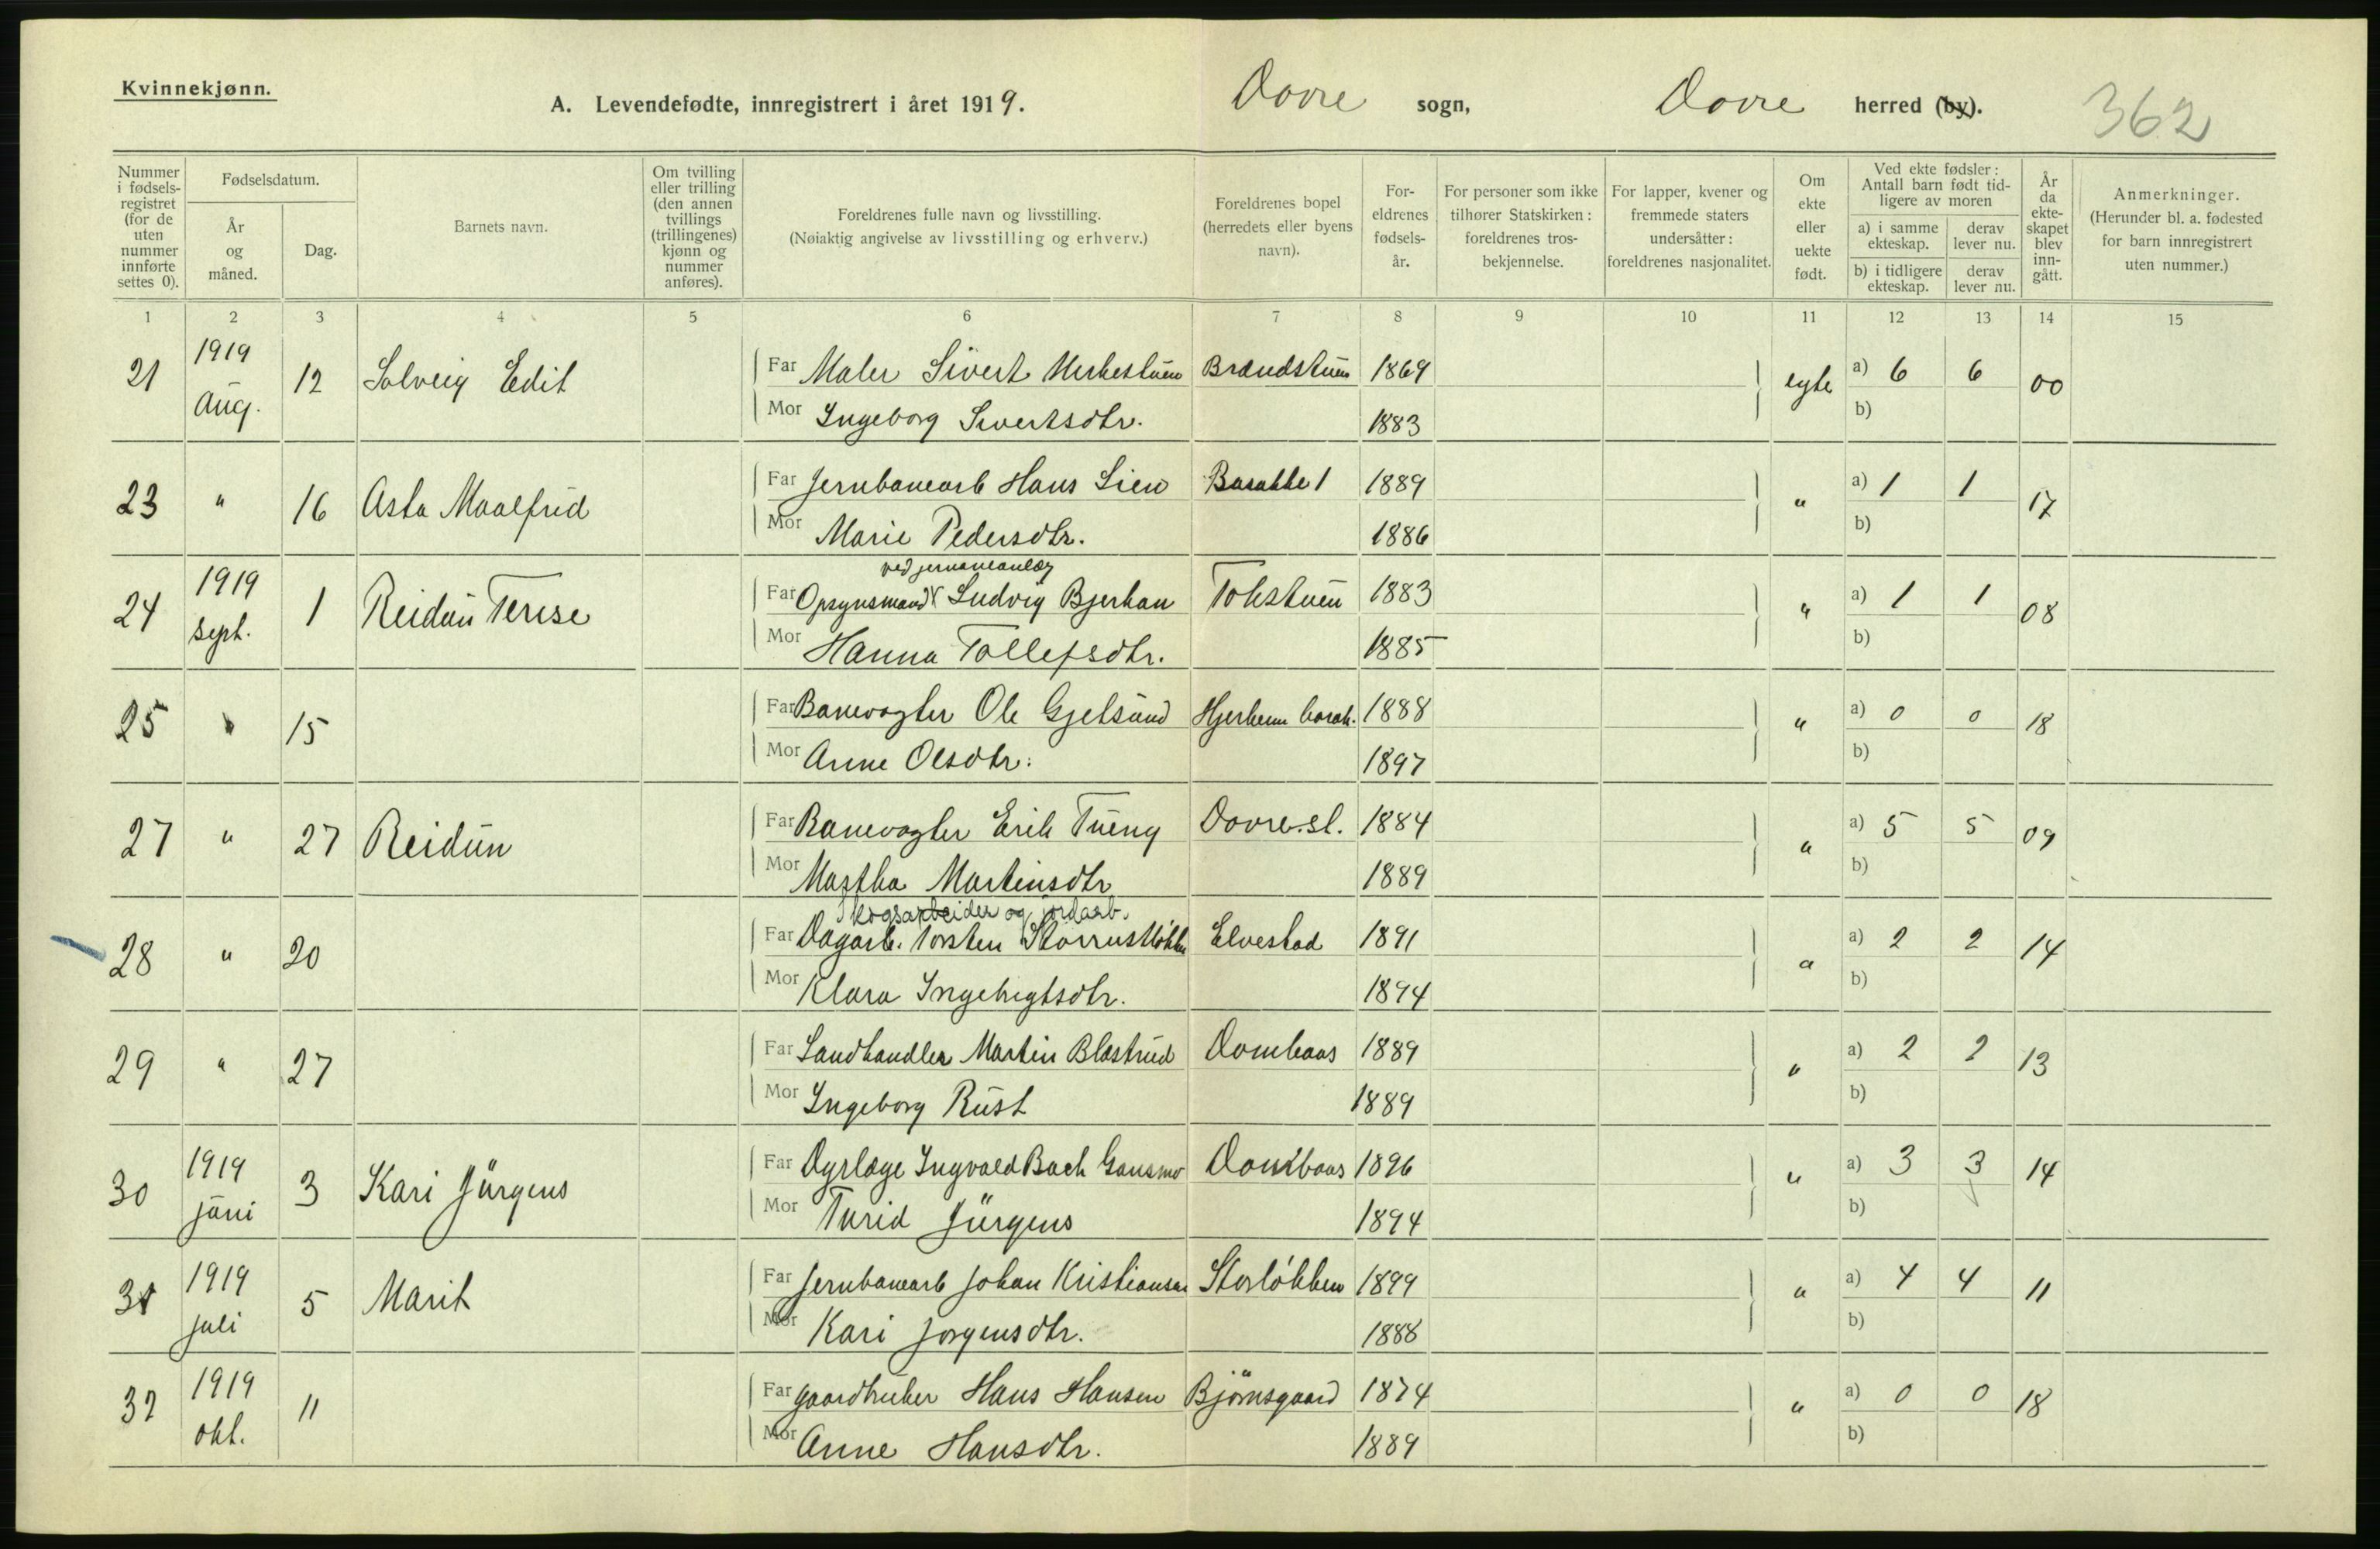 Kvinnekjønn.
A. Levendefødte, innregistrert i året 1919. Dovre sogn, Dovre herred (by). 362
Nummer i fødsels-registret (for de uten nummer innførte settes 0).
Fødselsdatum.
År og måned.
Dag.
Barnets navn.
Om tvilling eller trilling (den annen tvillings (trillingenes) kjønn og nummer anføres).
Foreldrenes fulle navn og livsstilling.
(Nøiaktig angivelse av livsstilling og erhverv.)
Foreldrenes bopel (herredets eller byens navn).
For-eldrenes fødsels-år.
For personer som ikke tilhører Statskirken: foreldrenes tros-bekjennelse.
For lapper, kvener og fremmede staters undersåtter: foreldrenes nasjonalitet.
Om ekte eller uekte født.
Ved ekte fødsler: Antall barn født tid-ligere av moren
a) i samme ekteskap. derav lever nu.
b) i tidligere ekteskap. derav lever nu.
År da ekte-skapet blev inn-gått.
Anmerkninger.
(Herunder bl. a. fødested for barn innregistrert uten nummer.)
1 2 3 4 5 6 7 8 9 10 11 12 13 14 15
21 1919 Aug. 12 Solveig Edit Far Maler Sivert Brandstuen 1869 egte a) 6 6 00
Mor Ingeborg Sivertsdtr. 1883 b)
23 " 16 Asta Maalfrid Far Jernbanearb Hans Lien Barakke 1 1889 " a) 1 1 17
Mor Marie Pedersdtr. 1886 b)
24 1919 sept. 1 Reidun Terese Far Opsynsmand Ludvig Bjerkan Tokstuen 1883 " a) 1 1 08
Mor Hanna Tollefsdtr. 1885 b)
25 " 15 Far Banevogter Ole Gjelsund Hjerkinn barak. 1888 " a) 0 0 18
Mor Anne Olsdtr. 1897 b)
27 " 27 Reidun Far Banevogter Erik Tueng Dovre st. 1884 " a) 5 5 09
Mor Martha Martinsdtr 1889 b)
Skogsarbeider og jordarb.
28 " 20 Far Dagarb. Torsten Storrustløkken Elvestad 1891 " a) 2 2 14
Mor Klara Ingebrigtsdtr. 1894 b)
29 " 27 Far Landhandler Martin Blæstrud Dombaas 1889 " a) 2 2 13
Mor Ingeborg Rust 1889 b)
30 1919 juni 3 Kari Jürgens Far Dyrlæge Ingvald Bach Gansmo Dombaas 1896 " a) 3 3 14
Mor Turid Jürgens 1894 b)
31 1919 juli 5 Marit Far Jernbanearb Johan Kristiansen Storløkken 1899 " a) 4 4 11
Mor Kari Jorgensdtr. 1888 b)
32 1919 okt. 11 Far gaardbruker Hans Hansen Björnsgaard 1874 " a) 0 0 18
Mor Anne Hansdtr. 1889 b)